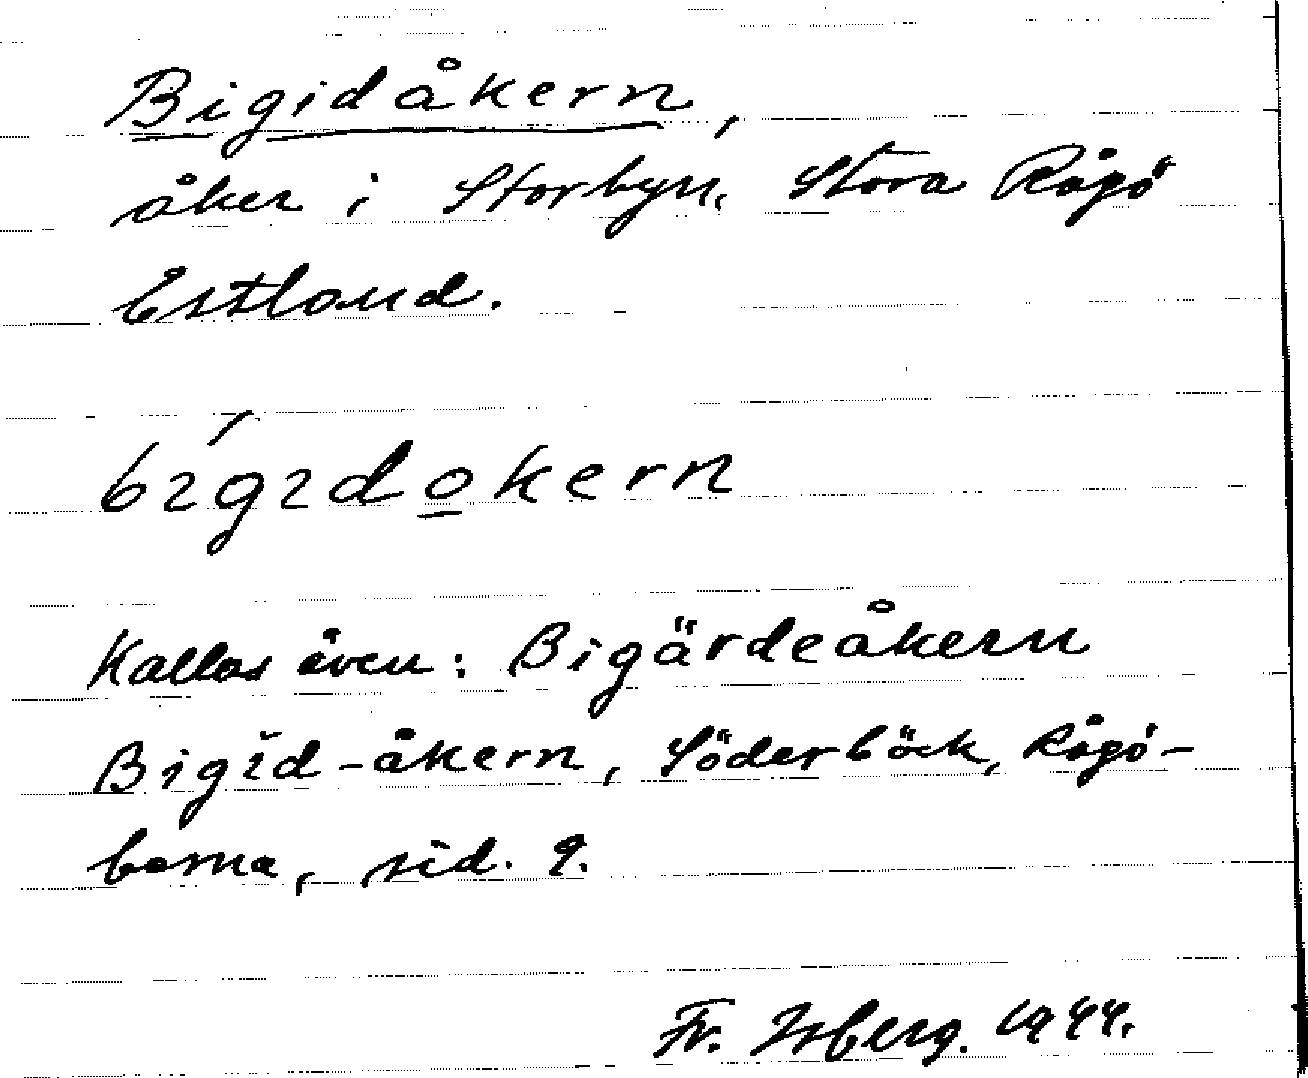 Bigidåkern,
åker i Storbyn, Stora Rågö
Estland.
bɩ́gɩdo̲kern
Kallas även: Bigärdeåkern
Bigĭd-åkern, Söderbäck, Rågö-
borna, sid. 9.
Fr. Isberg. 1944.